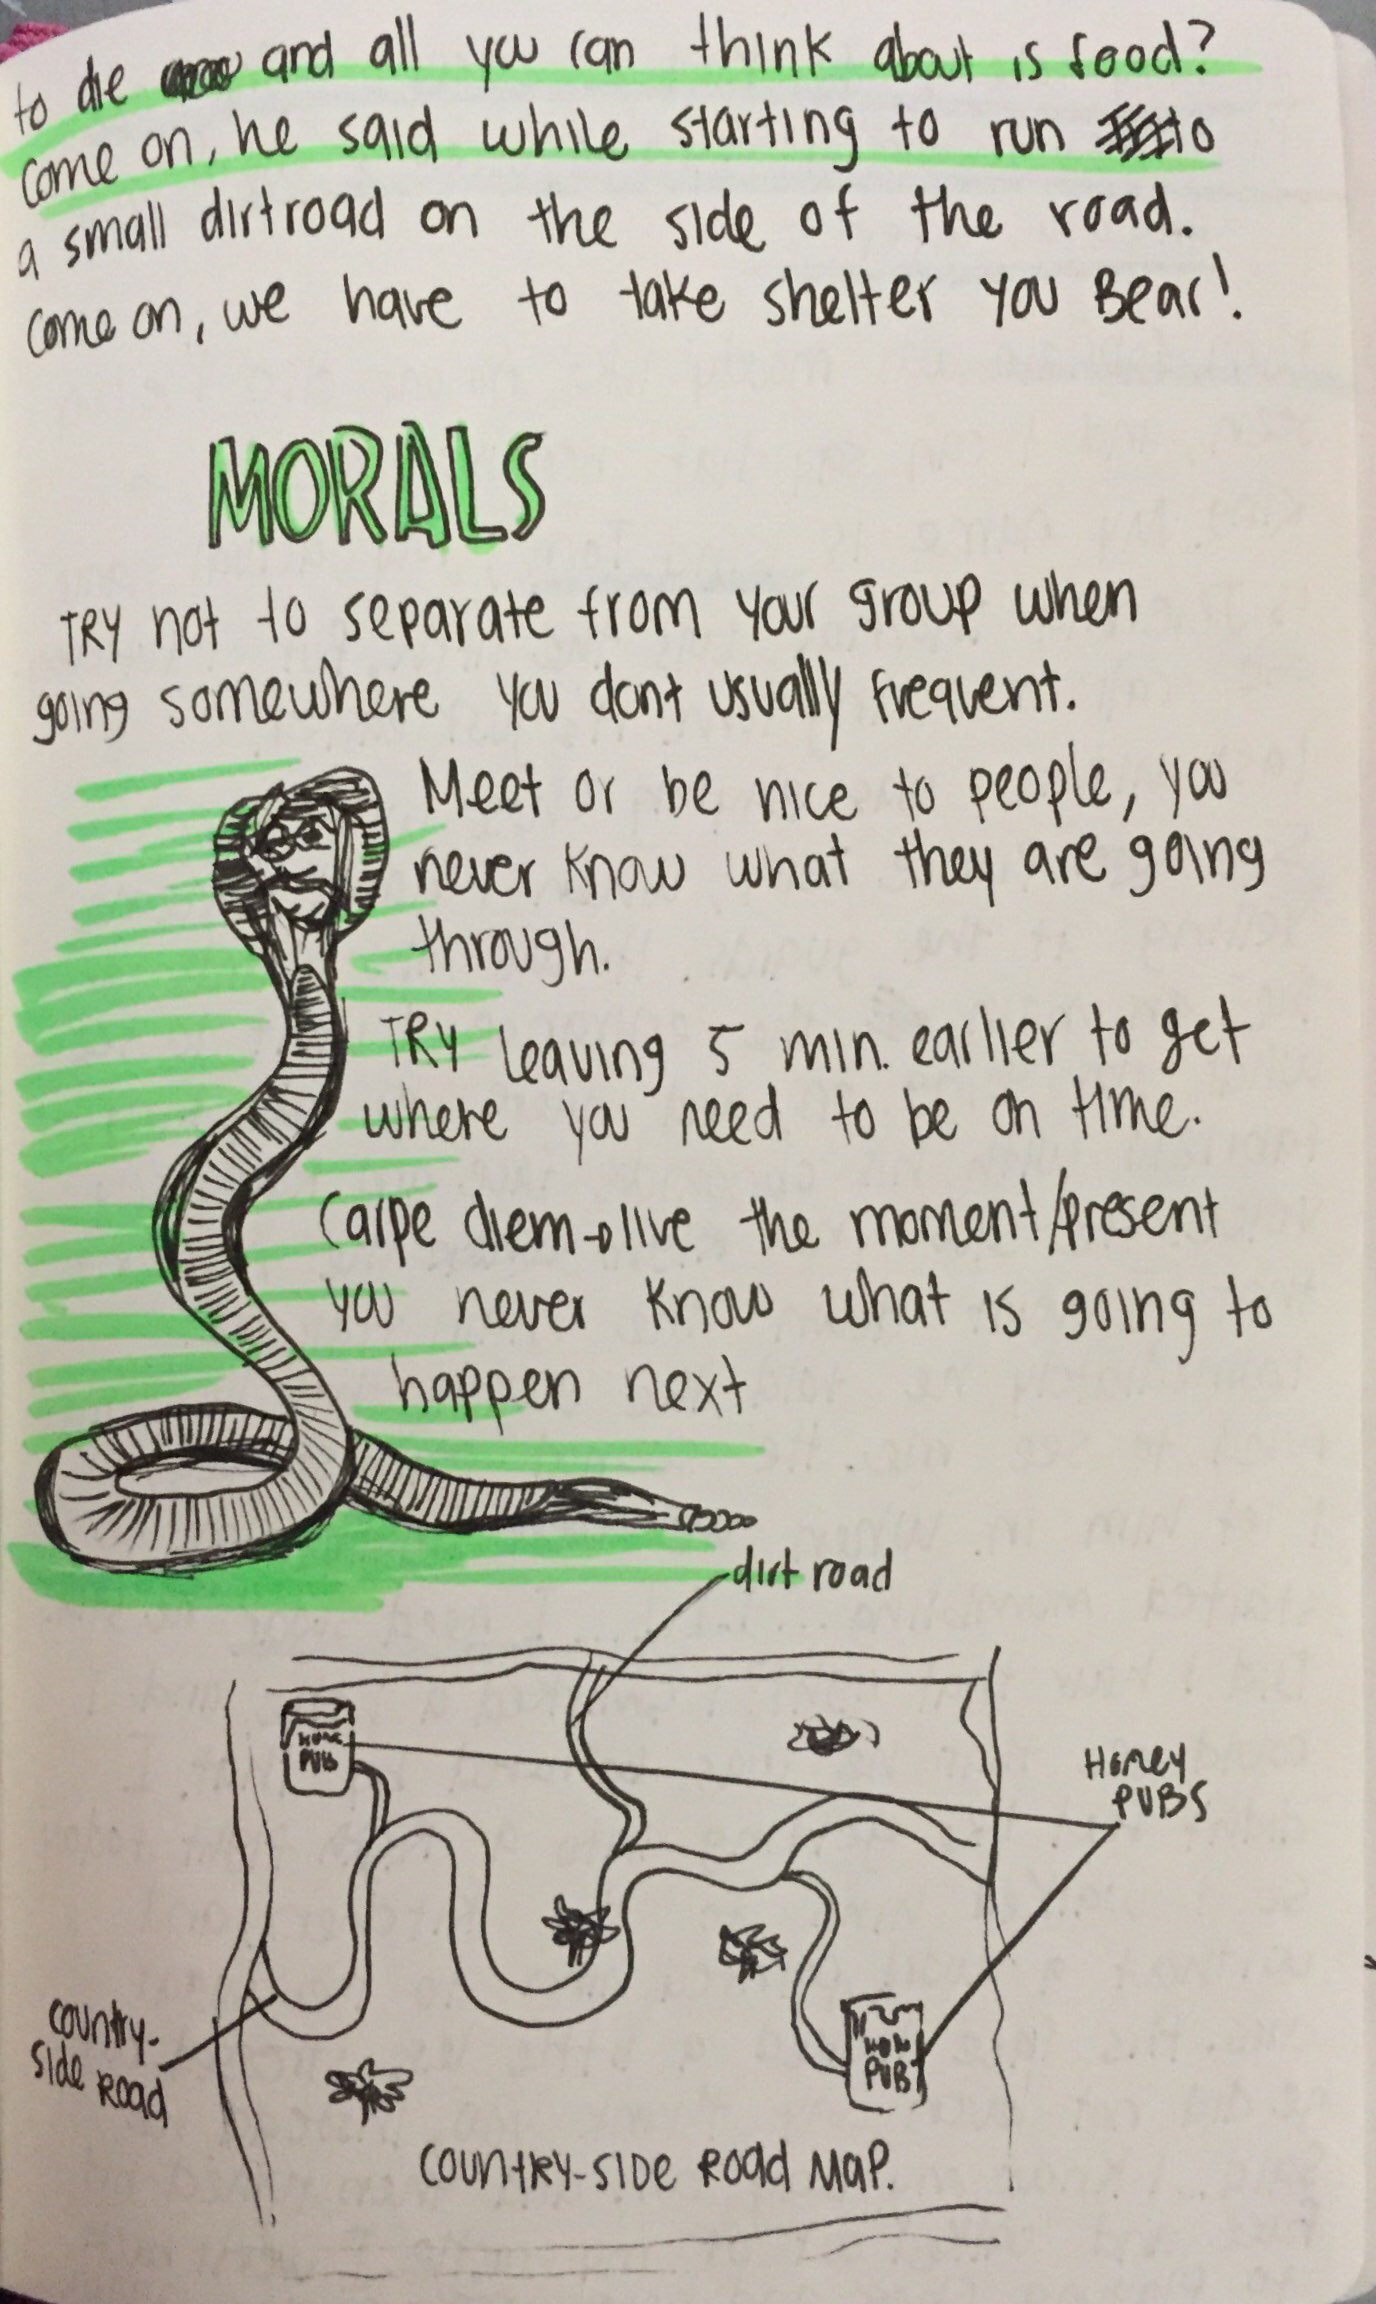 to die and all you can think about is food?
come on, he said while starting to run to
a small dirtroad on the side of the road.
come on, we have to take shelter you Bear!
MORALS
TRY not to separate from your group when
going somewhere you dont usually frequent.
Meet or be nice to people, you
never know what they are going
through.
TRY leaving 5 min. earlier to get
where you need to be on time.
Carpe diem→live the moment/present
you never know what is going to
happen next
dirt road
PUB
Honey
PUBS
country-
side road
PUB
COUNTRY-SIDE ROAD MAP.